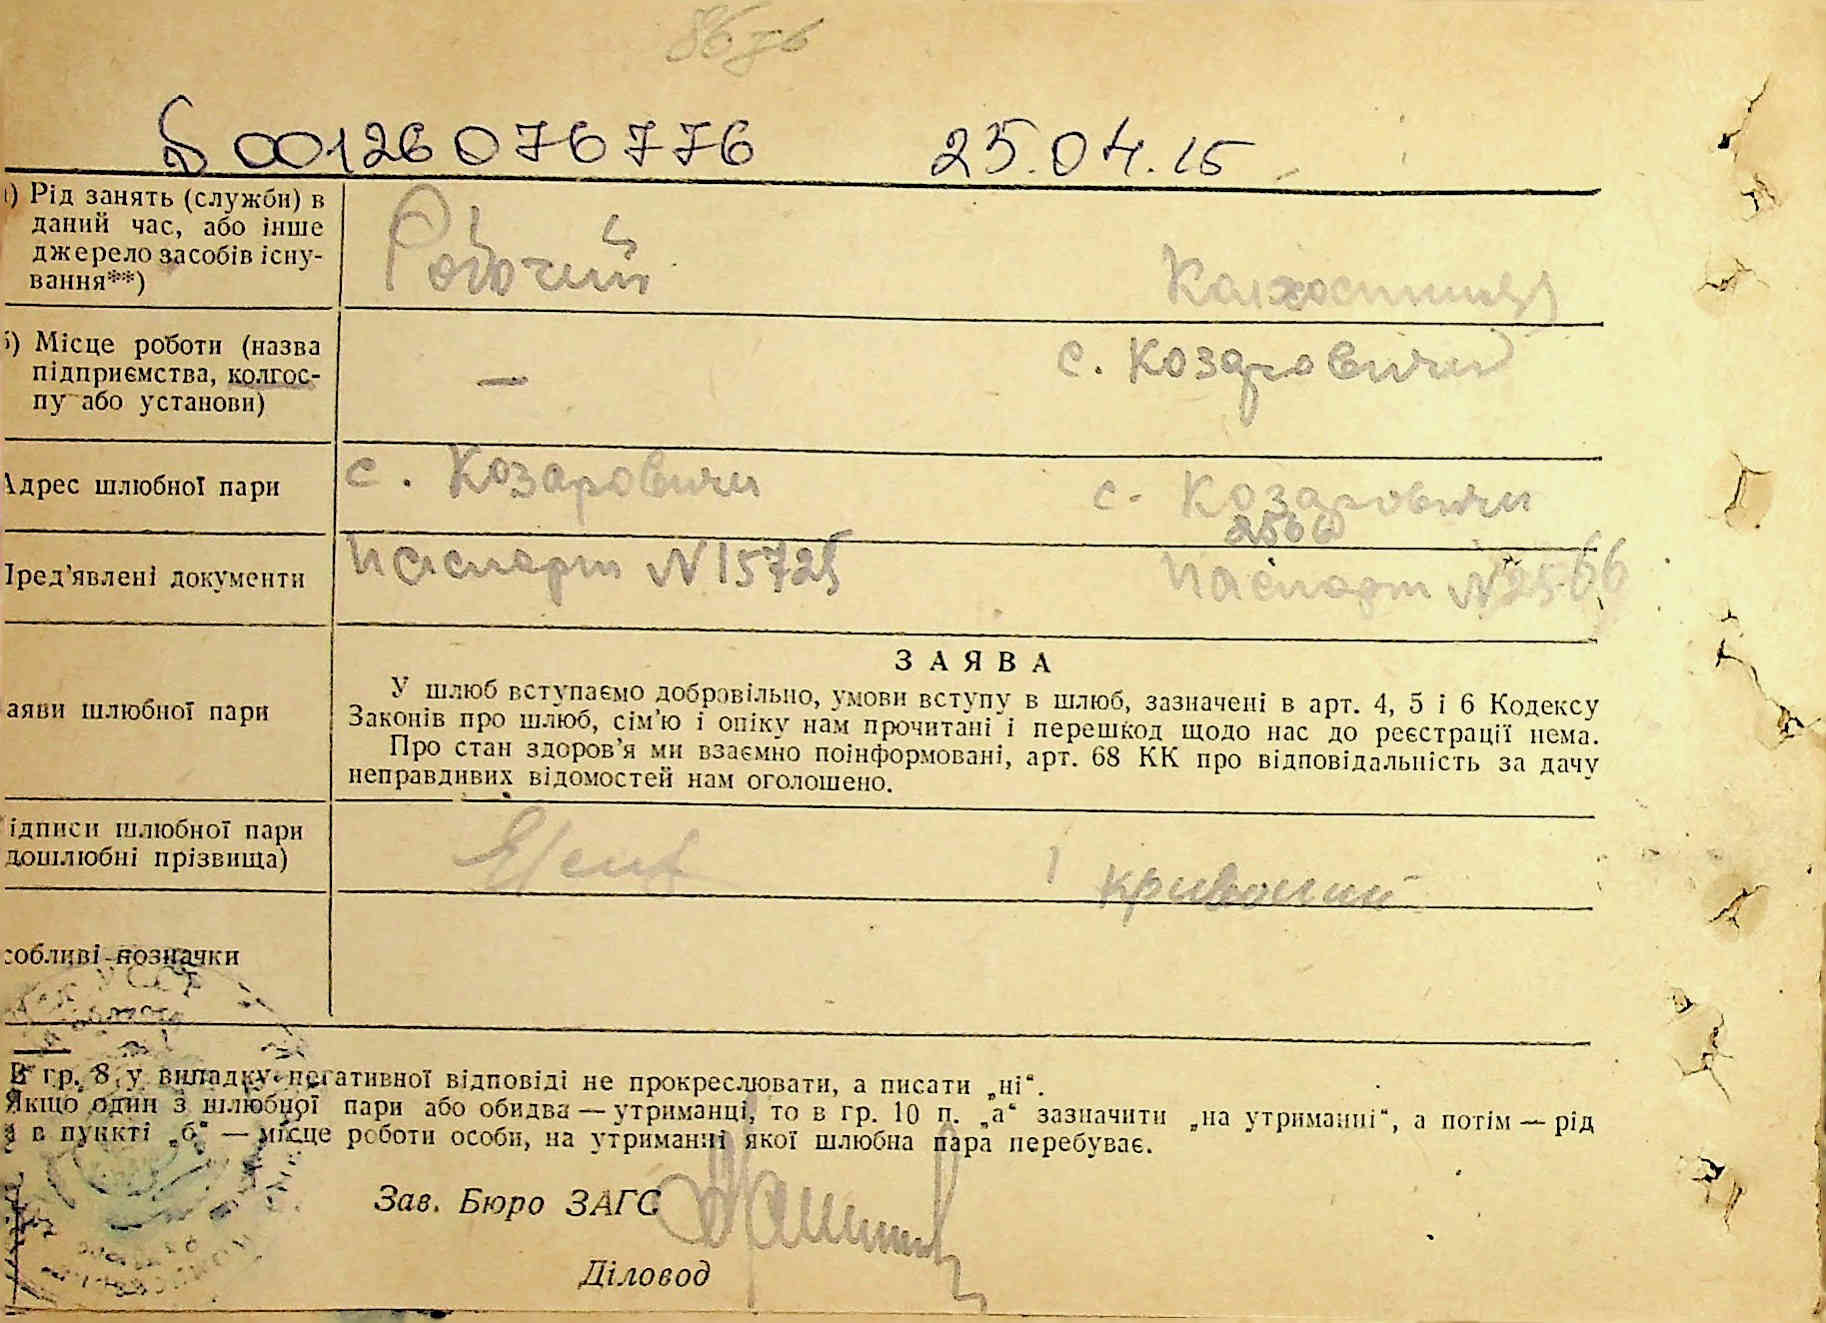 S 00126076776 25.04.15
) Рід занять (служби) в
даний час, або інше
джерело засобів існу-
вання**)
Робочий
Колхостница
) Місце роботи (назва
підприємства, колгос-
пу або установи)
—
с. Козаровичи
Адрес шлюбної пари
с. Козаровичи
с. Козаровичи
2566
Пред’явлені документи
Паспорт N 15725
Паспорт N 2566
ЗАЯВА
аяви шлюбної пари
У шлюб вступаємо добровільно, умови вступу в шлюб, зазначені в арт. 4, 5 і 6 Кодексу
Законів про шлюб, сім’ю і опіку нам прочитані і перешкод щодо нас до реєстрації нема.
Про стан здоров’я ми взаємно поінформовані, арт. 68 КК про відповідальність за дачу
неправдивих відомостей нам оголошено.
ідписи шлюбної пари
дошлюбні прізвища)
собливі позначки
В гр. 8 у випадку негативної відповіді не прокреслювати, а писати „ні“.
Якщо один з шлюбної пари або обидва — утриманці, то в гр. 10 п. „а“ зазначити „на утриманні“, а потім — рід
а в пункті „б“ — місце роботи особи, на утриманні якої шлюбна пара перебуває.
Зав. Бюро ЗАГС
Діловод